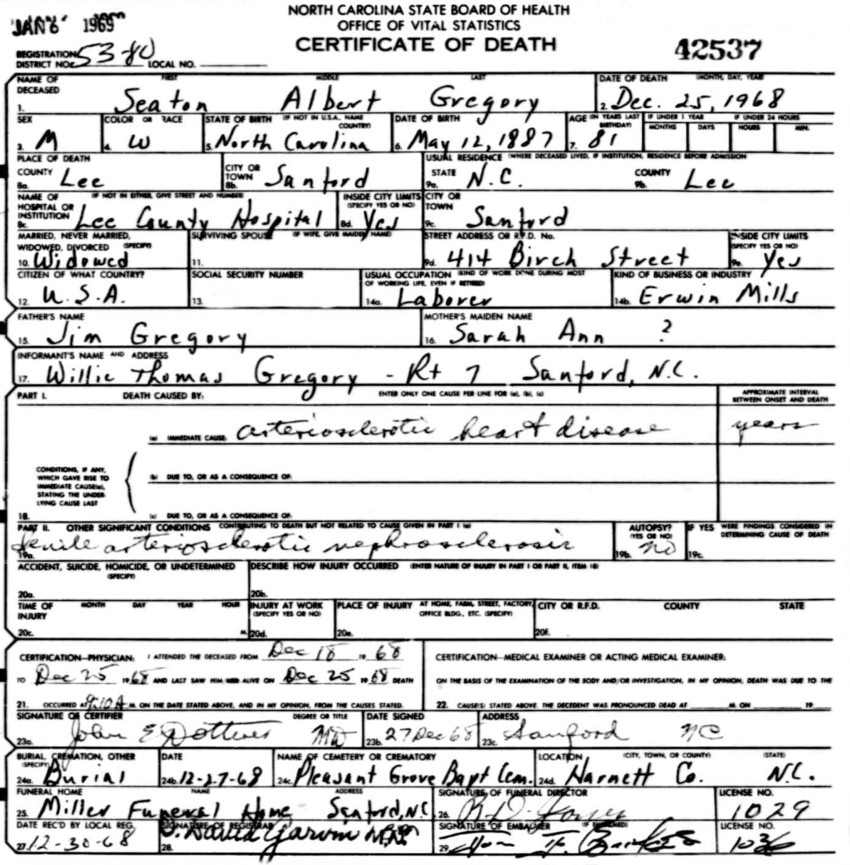 NORTH CAROLINA STATE BOARD OF HEALTH
OFFICE OF VITAL STATISTICS
CERTIFICATE OF DEATH
JAN 6 1969
42537
REGISTRATION DISTRICT NO. 53-80 LOCAL NO.
NAME OF DECEASED FIRST MIDDLE LAST DATE OF DEATH (MONTH, DAY, YEAR)
1. Seaton Albert Gregory 2. Dec. 25, 1968
SEX COLOR OR RACE STATE OF BIRTH (IF NOT IN U.S.A., NAME COUNTRY) DATE OF BIRTH AGE (IN YEARS LAST BIRTHDAY) IF UNDER 1 YEAR IF UNDER 24 HOURS
MONTHS DAYS HOURS MIN.
3. M 4. W 5. North Carolina 6. May 12, 1887 7. 81
PLACE OF DEATH USUAL RESIDENCE (WHERE DECEASED LIVED, IF INSTITUTION, RESIDENCE BEFORE ADMISSION)
COUNTY CITY OR TOWN STATE COUNTY
8a. Lee 8b. Sanford 9a. N.C. 9b. Lee
NAME OF HOSPITAL OR INSTITUTION (IF NOT IN EITHER, GIVE STREET AND NUMBER) INSIDE CITY LIMITS (SPECIFY YES OR NO) CITY OR TOWN
8c. Lee County Hospital 8d. Yes 9c. Sanford
MARRIED, NEVER MARRIED, WIDOWED, DIVORCED (SPECIFY) SURVIVING SPOUSE (IF WIFE, GIVE MAIDEN NAME) STREET ADDRESS OR R.F.D. No. INSIDE CITY LIMITS (SPECIFY YES OR NO)
10. Widowed 11. 9d. 414 Birch Street 9e. Yes
CITIZEN OF WHAT COUNTRY? SOCIAL SECURITY NUMBER USUAL OCCUPATION (KIND OF WORK DONE DURING MOST OF WORKING LIFE, EVEN IF RETIRED) KIND OF BUSINESS OR INDUSTRY
12. U.S.A. 13. 14a. Laborer 14b. Erwin Mills
FATHER'S NAME MOTHER'S MAIDEN NAME
15. Jim Gregory 16. Sarah Ann ?
INFORMANT'S NAME AND ADDRESS
17. Willie Thomas Gregory - Rt 7 Sanford, N.C.
PART I. DEATH CAUSED BY: ENTER ONLY ONE CAUSE PER LINE FOR (a), (b), (c) APPROXIMATE INTERVAL BETWEEN ONSET AND DEATH
(a) IMMEDIATE CAUSE arteriosclerotic heart disease years
CONDITIONS, IF ANY, WHICH GAVE RISE TO IMMEDIATE CAUSE(a), STATING THE UNDERLYING CAUSE LAST
(b) DUE TO, OR AS A CONSEQUENCE OF:
18. (c) DUE TO, OR AS A CONSEQUENCE OF:
PART II. OTHER SIGNIFICANT CONDITIONS CONTRIBUTING TO DEATH BUT NOT RELATED TO CAUSE GIVEN IN PART I (a) AUTOPSY? (YES OR NO) IF YES WERE FINDINGS CONSIDERED IN DETERMINING CAUSE OF DEATH
19a. senile arteriosclerotic nephrosclerosis 19b. no 19c.
ACCIDENT, SUICIDE, HOMICIDE, OR UNDETERMINED (SPECIFY) DESCRIBE HOW INJURY OCCURRED (ENTER NATURE OF INJURY IN PART I OR PART II, ITEM 18)
20a. 20b.
TIME OF INJURY MONTH DAY YEAR HOUR INJURY AT WORK (SPECIFY YES OR NO) PLACE OF INJURY AT HOME, FARM, STREET, FACTORY, OFFICE BLDG., ETC. (SPECIFY) CITY OR R.F.D. COUNTY STATE
20c. M. 20d. 20e. 20f.
CERTIFICATION-PHYSICIAN: I ATTENDED THE DECEASED FROM Dec 18 1968
TO Dec 25 1968 AND LAST SAW HIM/HER ALIVE ON Dec 25 1968 DEATH
21. OCCURRED AT 9:10 A M. ON THE DATE STATED ABOVE, AND IN MY OPINION, FROM THE CAUSES STATED.
CERTIFICATION-MEDICAL EXAMINER OR ACTING MEDICAL EXAMINER:
ON THE BASIS OF THE EXAMINATION OF THE BODY AND/OR INVESTIGATION, IN MY OPINION, DEATH WAS DUE TO THE
22. CAUSE(S) STATED ABOVE. THE DECEDENT WAS PRONOUNCED DEAD AT M. ON 19
SIGNATURE OF CERTIFIER DEGREE OR TITLE DATE SIGNED ADDRESS
23a. John E Dotterer MD 23b. 27 Dec 68 23c. Sanford NC
BURIAL, CREMATION, OTHER (SPECIFY) DATE NAME OF CEMETERY OR CREMATORY LOCATION (CITY, TOWN, OR COUNTY) (STATE)
24a. Burial 24b. 12-27-68 24c. Pleasant Grove Bapt Cem. 24d. Harnett Co. N.C.
FUNERAL HOME NAME ADDRESS SIGNATURE OF FUNERAL DIRECTOR LICENSE NO.
25. Miller Funeral Home Sanford, N.C. 26. 1029
DATE REC'D BY LOCAL REG. SIGNATURE OF REGISTRAR SIGNATURE OF EMBALMER LICENSE NO.
27. 12-30-68 28. 29.